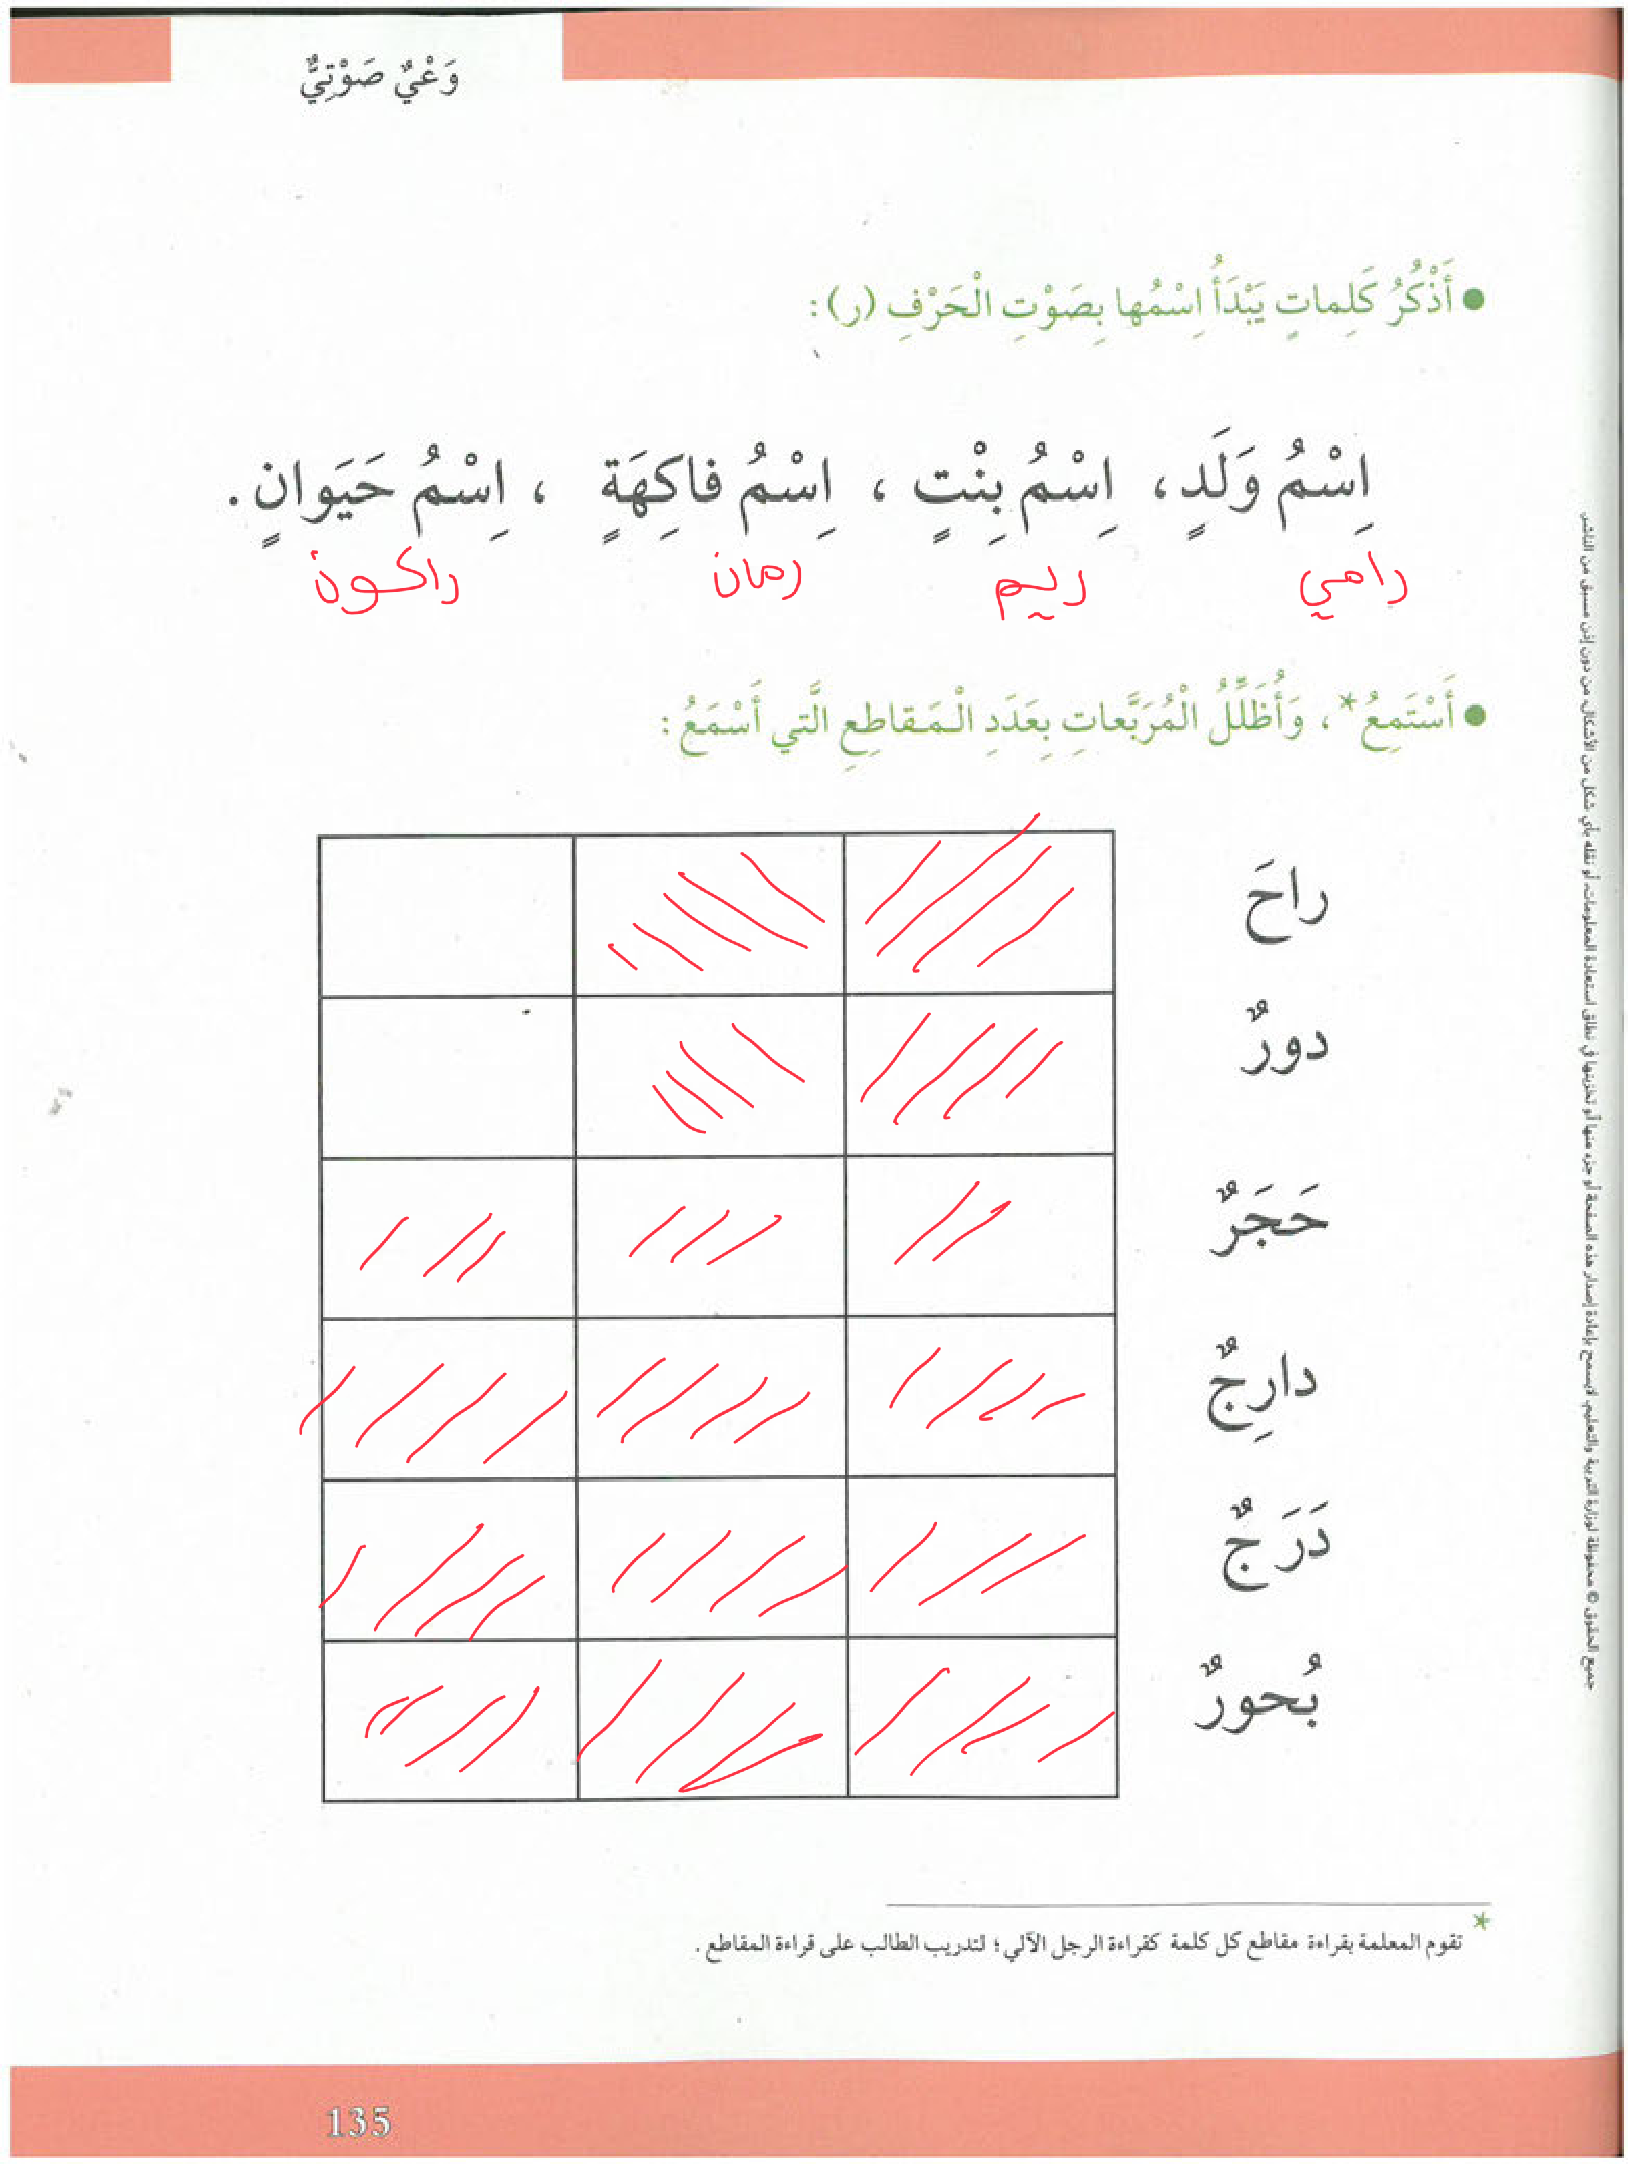 وَعْيٌ صَوْتِيٌّ
● أَذْكُرُ كَلِماتٍ يَبْدَأُ اِسْمُها بِصَوْتِ الْحَرْفِ (ر):
اِسْمُ وَلَدٍ، اِسْمُ بِنْتٍ ، اِسْمُ فاكِهَةٍ ، اِسْمُ حَيَوانٍ .
رامي ريم رمان راكون
● أَسْتَمِعُ* ، وَأُظَلِّلُ الْمُرَبَّعاتِ بِعَدَدِ الْمَقاطِعِ الَّتي أَسْمَعُ:
راحَ
دورٌ
حَجَرٌ
دارِجٌ
دَرَجٌ
بُحورٌ
* تقوم المعلمة بقراءة مقاطع كل كلمة كقراءة الرجل الآلي ؛ لتدريب الطالب على قراءة المقاطع .
135
جميع الحقوق © محفوظة لوزارة التربية والتعليم. لايسمح بإعادة إصدار هذه الصفحة أو جزء منها أو تخزينها في نطاق استعادة المعلومات، أو نقله بأي شكل من الأشكال، من دون إذن مسبق من الناشر.